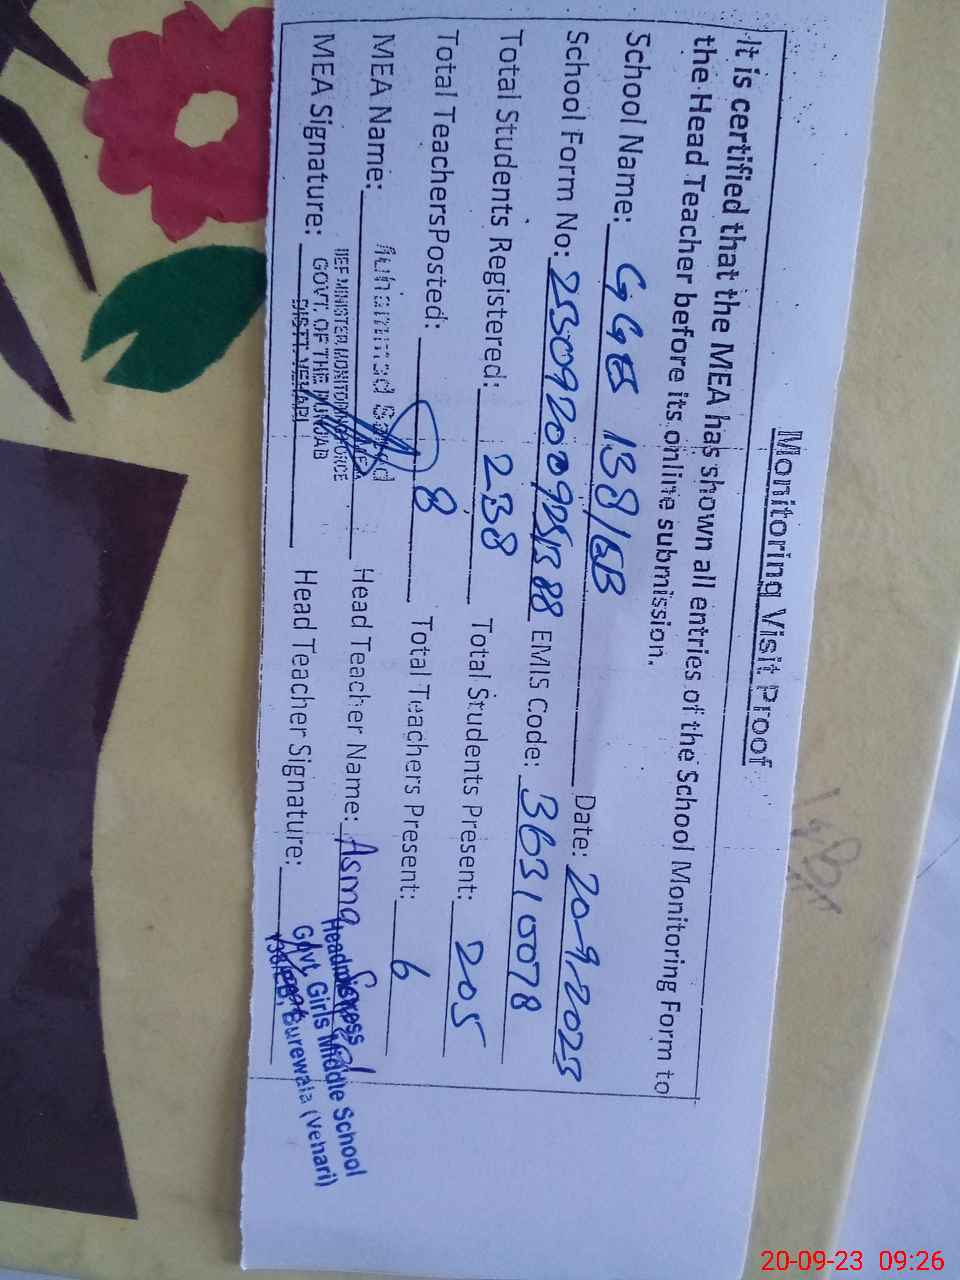 Monitoring Visit Proof
It is certified that the MEA has shown all entries of the School Monitoring Form to
the Head Teacher before its online submission.
School Name: GGES 138/EB Date: 20-9-2023
School Form No: EMIS Code: 36310078
Total Students Registered: 238 Total Students Present: 205
Total TeachersPosted: 8 Total Teachers Present: 6
MEA Name: Muhammad Head Teacher Name: Asma
MEA Signature: Head Teacher Signature:
IEF MINISTER MONITORING FORCE
GOVT. OF THE PUNJAB
DISTT. VEHARI
Headmistress
Govt. Girls Middle School
138/EB, Burewala (Vehari)
20-09-23 09:26